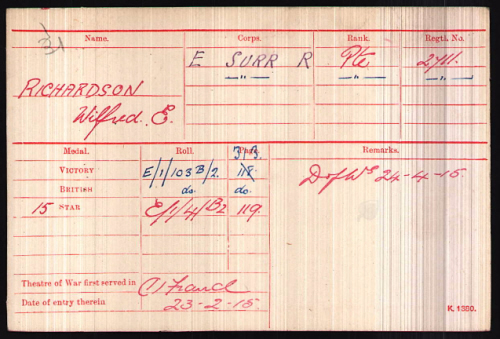 Name. Corps. Rank. Regtl. No.
E SURR R Pte
RICHARDSON —"— —"— —"—
Wilfred. E.
Medal. Roll. Page. Remarks.
313.
VICTORY E/1/103 B/2. 118. D of Ws 24-4-15.
BRITISH do. do.
15 STAR E/1/4/B2 119.
Theatre of War first served in (1) France
Date of entry therein 23-2-15.
K. 1380.